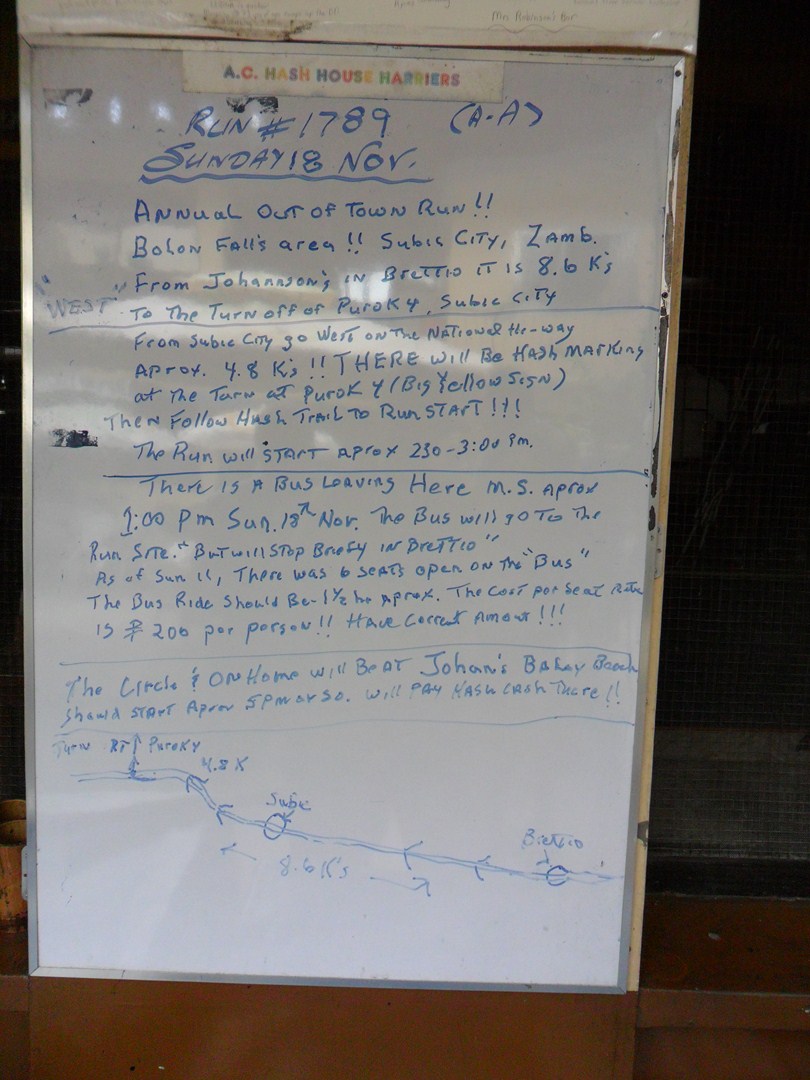 Mrs Robinson's Bar
A.C. HASH HOUSE HARRIERS
RUN # 1789 (A-A)
SUNDAY 18 NOV.
Annual Out of Town Run!!
Bolon Fall's area !! Subic City, Zamb.
"From Johannson's in Brettio it is 8.6 K's
"WEST" To The Turn off of Purok 4, Subic City
From Subic City go West on The National Hi-way
Aprox. 4.8 K's !! THERE will Be Hash Marking
at The Turn at Purok 4 (Big Yellow Sign)
Then Follow Hash Trail To Run START !!!
The Run will START Aprox 230-3:00 Pm.
There Is A Bus Leaving Here M.S. Aprox
1:00 Pm Sun. 18th Nov. The Bus will go To The
Run Site. "But will Stop Briefy in Brettio"
As of Sun 11, There was 6 seats open on The "Bus"
The Bus Ride Should Be 1½ hr Aprox. The Cost per Seat Rate
is ₱ 200 per person!! Have Correct Amount !!!
The Circle & On Home will Be AT Johan's Bahay Beach
Should START Aprox 5 Pm or So. will PAY Hash Cash There !!
Turn RT Purok 4
4.8 K
Subic
Brettio
8.6 K's